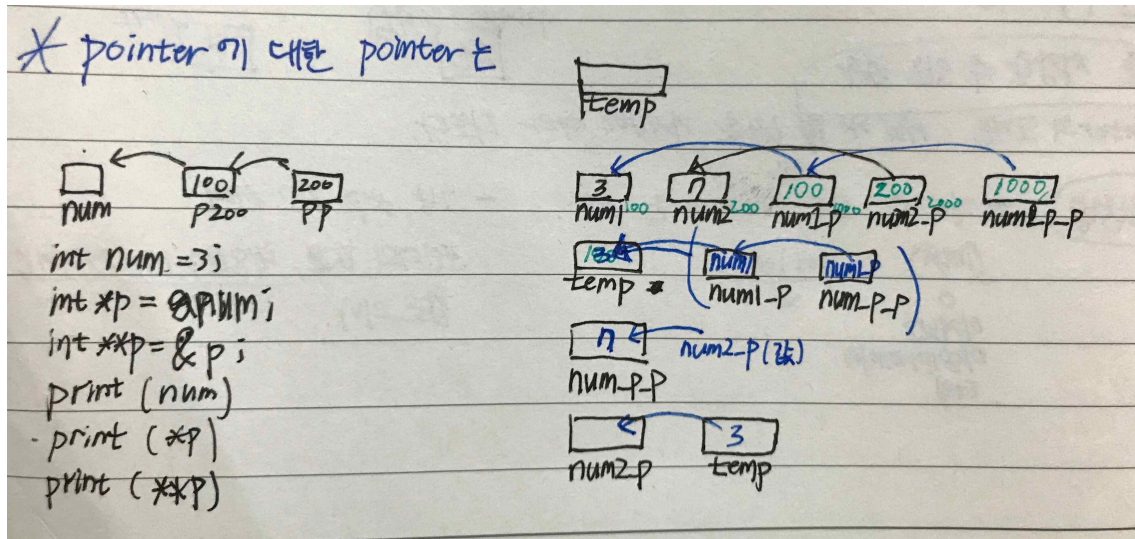 * pointer에 대한 pointer는
temp
100 200
num p200 pp
int num = 3;
int *p = &num;
int **p = & p;
print (num)
print (*p)
print (**p)
3 7 100 200 1000
num1 100 num2 200 num1_p 1000 num2_p 2000 p_p
num1 num1_p
temp num1_p num_p_p
7 num2_p(값)
num_p_p
3
num2_p temp